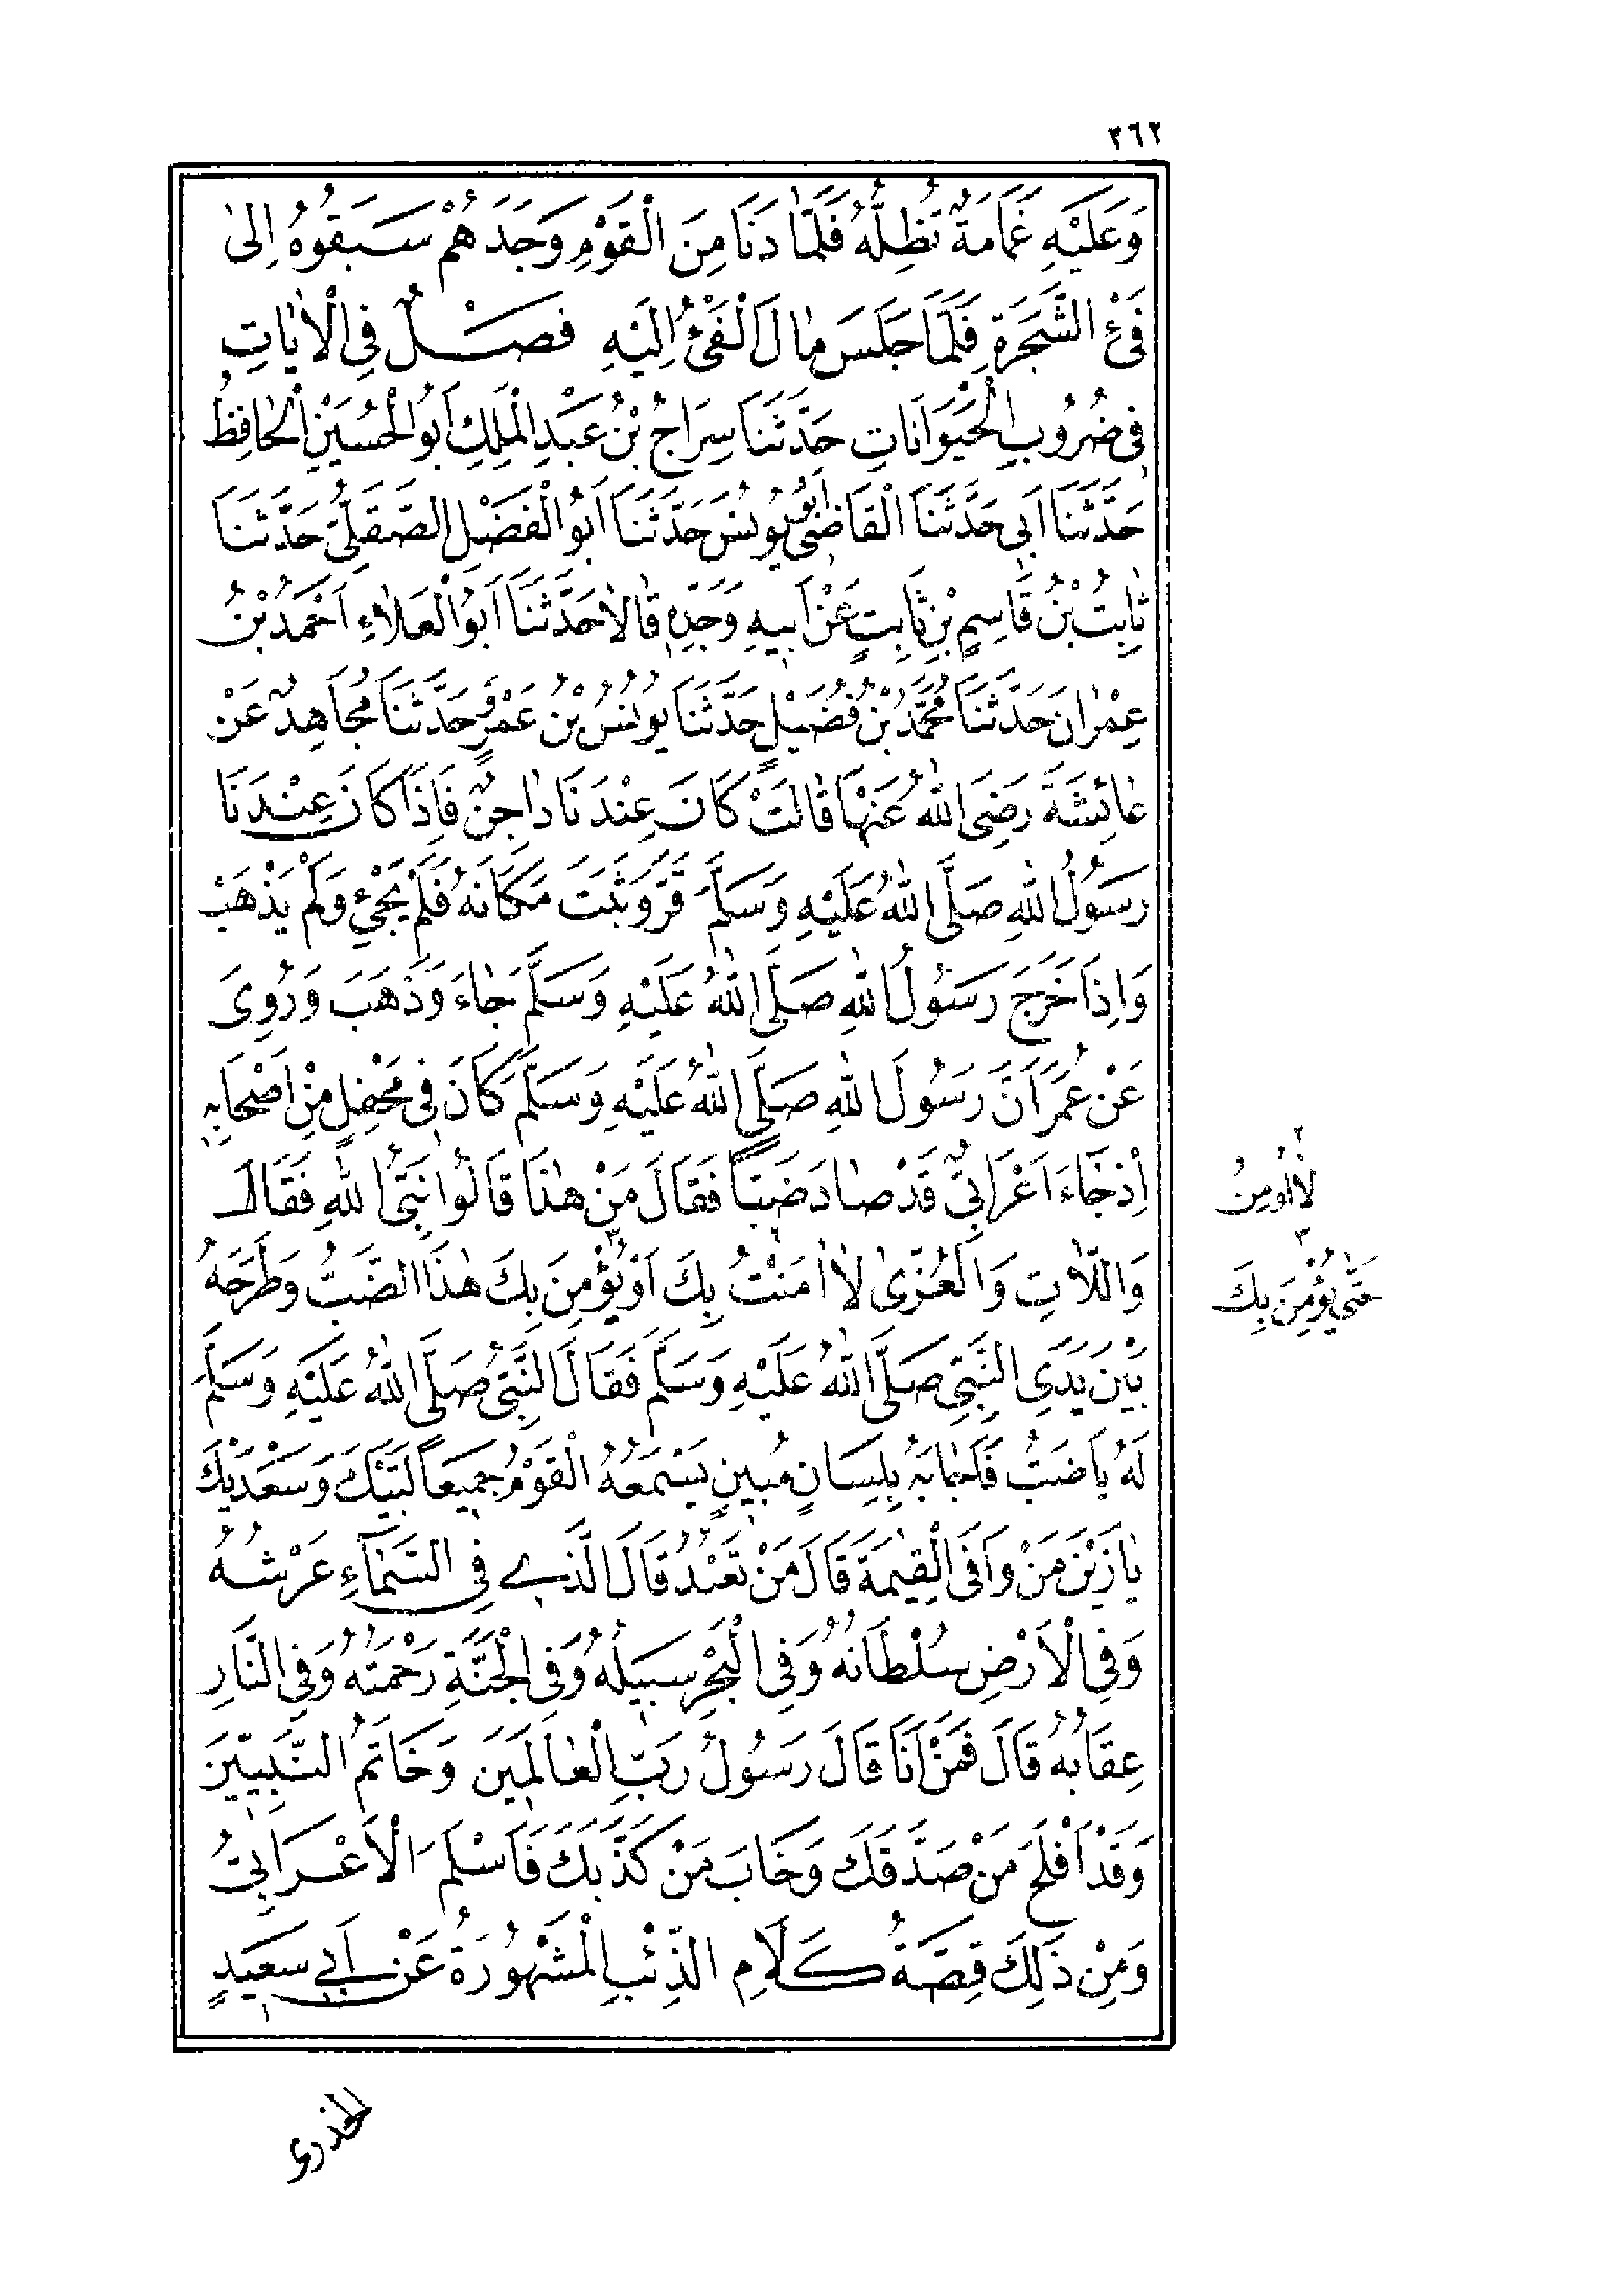 ٢٦٢
وَعَلَيْهِ غَمَامَةٌ تُظِلُّهُ فَلَمَّا دَنَا مِنَ الْقَوْمِ وَجَدَهُمْ سَبَقُوهُ اِلىٰ
فَىْءِ الشَّجَرَةِ فَلَمَّا جَلَسَ مٰالَ الْفَىْءُ اِلَيْهِ فَصْلٌ فِى الْاٰيَاتِ
فِى ضُرُوبِ الْحَيَوَانَاتِ حَدَّثَنَا سِرَاجُ بْنُ عَبْدِ الْمَلِكِ اَبُو الْحُسَيْنِ الْحَافِظُ
حَدَّثَنَا اَبِى حَدَّثَنَا الْقَاضِى اَبُو يُونُسَ حَدَّثَنَا اَبُو الْفَضْلِ الصِّقِلِّىُّ حَدَّثَنَا
ثٰابِتُ بْنُ قَاسِمِ بْنِ ثَابِتٍ عَنْ اَبِيهِ وَجَدِّهِ قٰالاٰ حَدَّثَنَا اَبُو الْعَلاٰءِ اَحْمَدُ بْنُ
عِمْرٰانَ حَدَّثَنَا مُحَمَّدُ بْنُ فُضَيْلٍ حَدَّثَنَا يُونُسُ بْنُ عَمْرٍو حَدَّثَنَا مُجَاهِدٌ عَنْ
عٰائِشَةَ رَضِىَ اللّٰهُ عَنْهٰا قٰالَتْ كَانَ عِنْدَنَا دٰاجِنٌ فَاِذَا كَانَ عِنْدَنَا
رَسُولُ اللّٰهِ صَلَّى اللّٰهُ عَلَيْهِ وَسَلَّمَ قَرَّ وَثَبَتَ مَكَانَهُ فَلَمْ يَجِئْ وَلَمْ يَذْهَبْ
وَاِذَا خَرَجَ رَسُولُ اللّٰهِ صَلَّى اللّٰهُ عَلَيْهِ وَسَلَّمَ جٰاءَ وَذَهَبَ وَرُوِىَ
عَنْ عُمَرَ اَنَّ رَسُولَ اللّٰهِ صَلَّى اللّٰهُ عَلَيْهِ وَسَلَّمَ كَانَ فِى مَحْفِلٍ مِنْ اَصْحَابِهِ
اِذْ جَاءَ اَعْرَابِىٌّ قَدْ صٰادَ ضَبًّا فَقَالَ مَنْ هٰذَا قَالُوا نَبِىُّ اللّٰهِ فَقَالَ
وَاللّاٰتِ وَالْعُزّىٰ لاٰ اٰمَنْتُ بِكَ اَوْ يُؤْمِنَ بِكَ هٰذَا الضَّبُّ وَطَرَحَهُ
بَيْنَ يَدَىِ النَّبِىِّ صَلَّى اللّٰهُ عَلَيْهِ وَسَلَّمَ فَقَالَ النَّبِىُّ صَلَّى اللّٰهُ عَلَيْهِ وَسَلَّمَ
لَهُ يَا ضَبُّ فَاَجٰابَهُ بِلِسَانٍ مُبِينٍ يَسْمَعُهُ الْقَوْمُ جَمِيعًا لَبَّيْكَ وَسَعْدَيْكَ
يٰا زَيْنَ مَنْ وَافَى الْقِيٰمَةَ قَالَ مَنْ تَعْبُدُ قَالَ الَّذِى فِى السَّمٰاءِ عَرْشُهُ
وَفِى الْاَرْضِ سُلْطَانُهُ وَفِى الْبَحْرِ سَبِيلُهُ وَفِى الْجَنَّةِ رَحْمَتُهُ وَفِى النَّارِ
عِقَابُهُ قَالَ فَمَنْ اَنَا قَالَ رَسُولُ رَبِّ الْعٰالَمِينَ وَخَاتَمُ النَّبِيِّينَ
وَقَدْ اَفْلَحَ مَنْ صَدَّقَكَ وَخَابَ مَنْ كَذَّبَكَ فَاَسْلَمَ الْاَعْرَابِىُّ
وَمِنْ ذَلِكَ قِصَّةُ كَلَامِ الذِّئْبِ الْمَشْهُورَةُ عَنْ اَبِى سَعِيدٍ
٢
لاٰ اُومِنُ
٣
حَتّٰى يُؤْمِنَ بِكَ
الخدرى